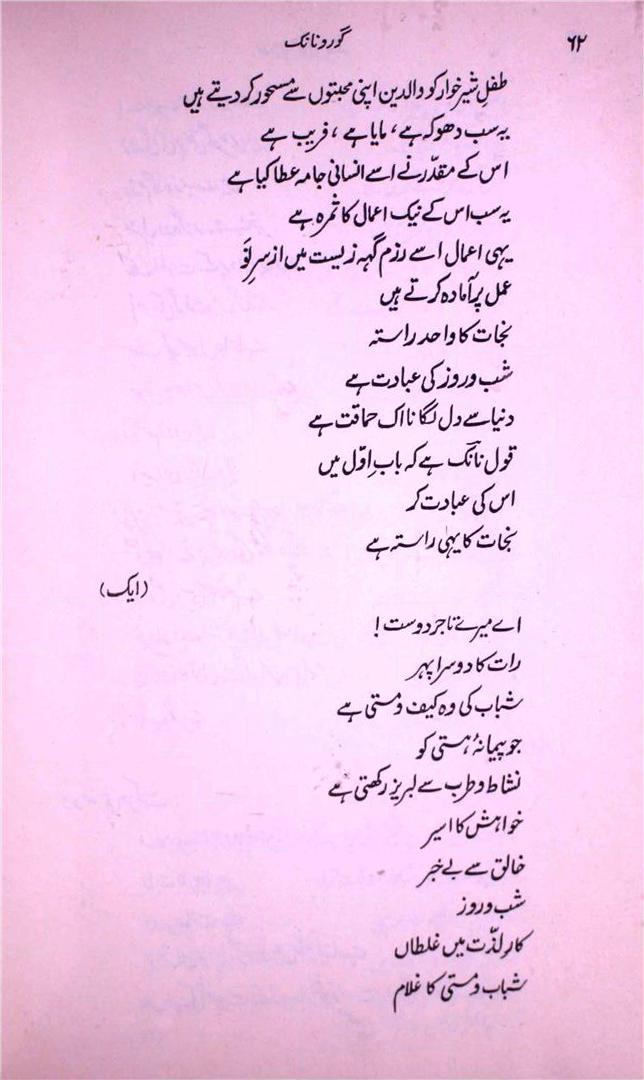 ۶۲ گورونانک
طفلِ شیر خوار کو والدین اپنی محبتوں سے مسحور کر دیتے ہیں
یہ سب دھوکہ ہے، مایا ہے، فریب ہے
اس کے مقدّر نے اسے انسانی جامہ عطا کیا ہے
یہ سب اس کے نیک اعمال کا ثمرہ ہے
یہی اعمال اسے رزم گہہ زیست میں از سرِ نَو
عمل پر آمادہ کرتے ہیں
نجات کا واحد راستہ
شب و روز کی عبادت ہے
دنیا سے دل لگانا اک حماقت ہے
قول نانک ہے کہ بابِ اوّل میں
اس کی عبادت کر
نجات کا یہی راستہ ہے
(ایک)
اے میرے تاجر دوست!
رات کا دوسرا پہر
شباب کی وہ کیف و مستی ہے
جو پیمانۂ ہستی کو
نشاط و طرب سے لبریز رکھتی ہے
خواہش کا اسیر
خالق سے بے خبر
شب و روز
کارِ لذّت میں غلطاں
شباب و مستی کا غلام